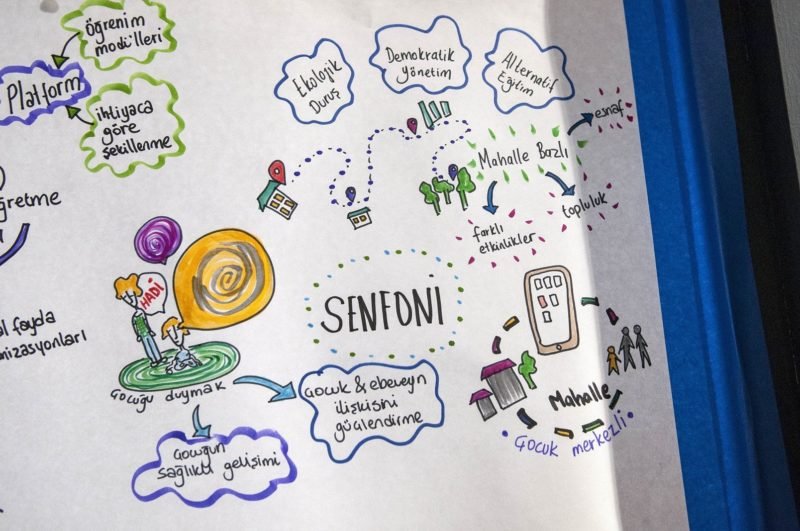 öğrenim
modülleri
Platform
ihtiyaca
göre
şekillenme
ğretme
al fayda
nizasyonları
Ekolojik
Duruş
Demokratik
Yönetim
Alternatif
Eğitim
Mahalle Bazlı
esnaf
topluluk
farklı
etkinlikler
HADİ
Çocuğu duymak
SENFONİ
Çocuk & ebeveyn
ilişkisini
güçlendirme
Çocuğun
sağlıklı gelişimi
Mahalle
Çocuk merkezli